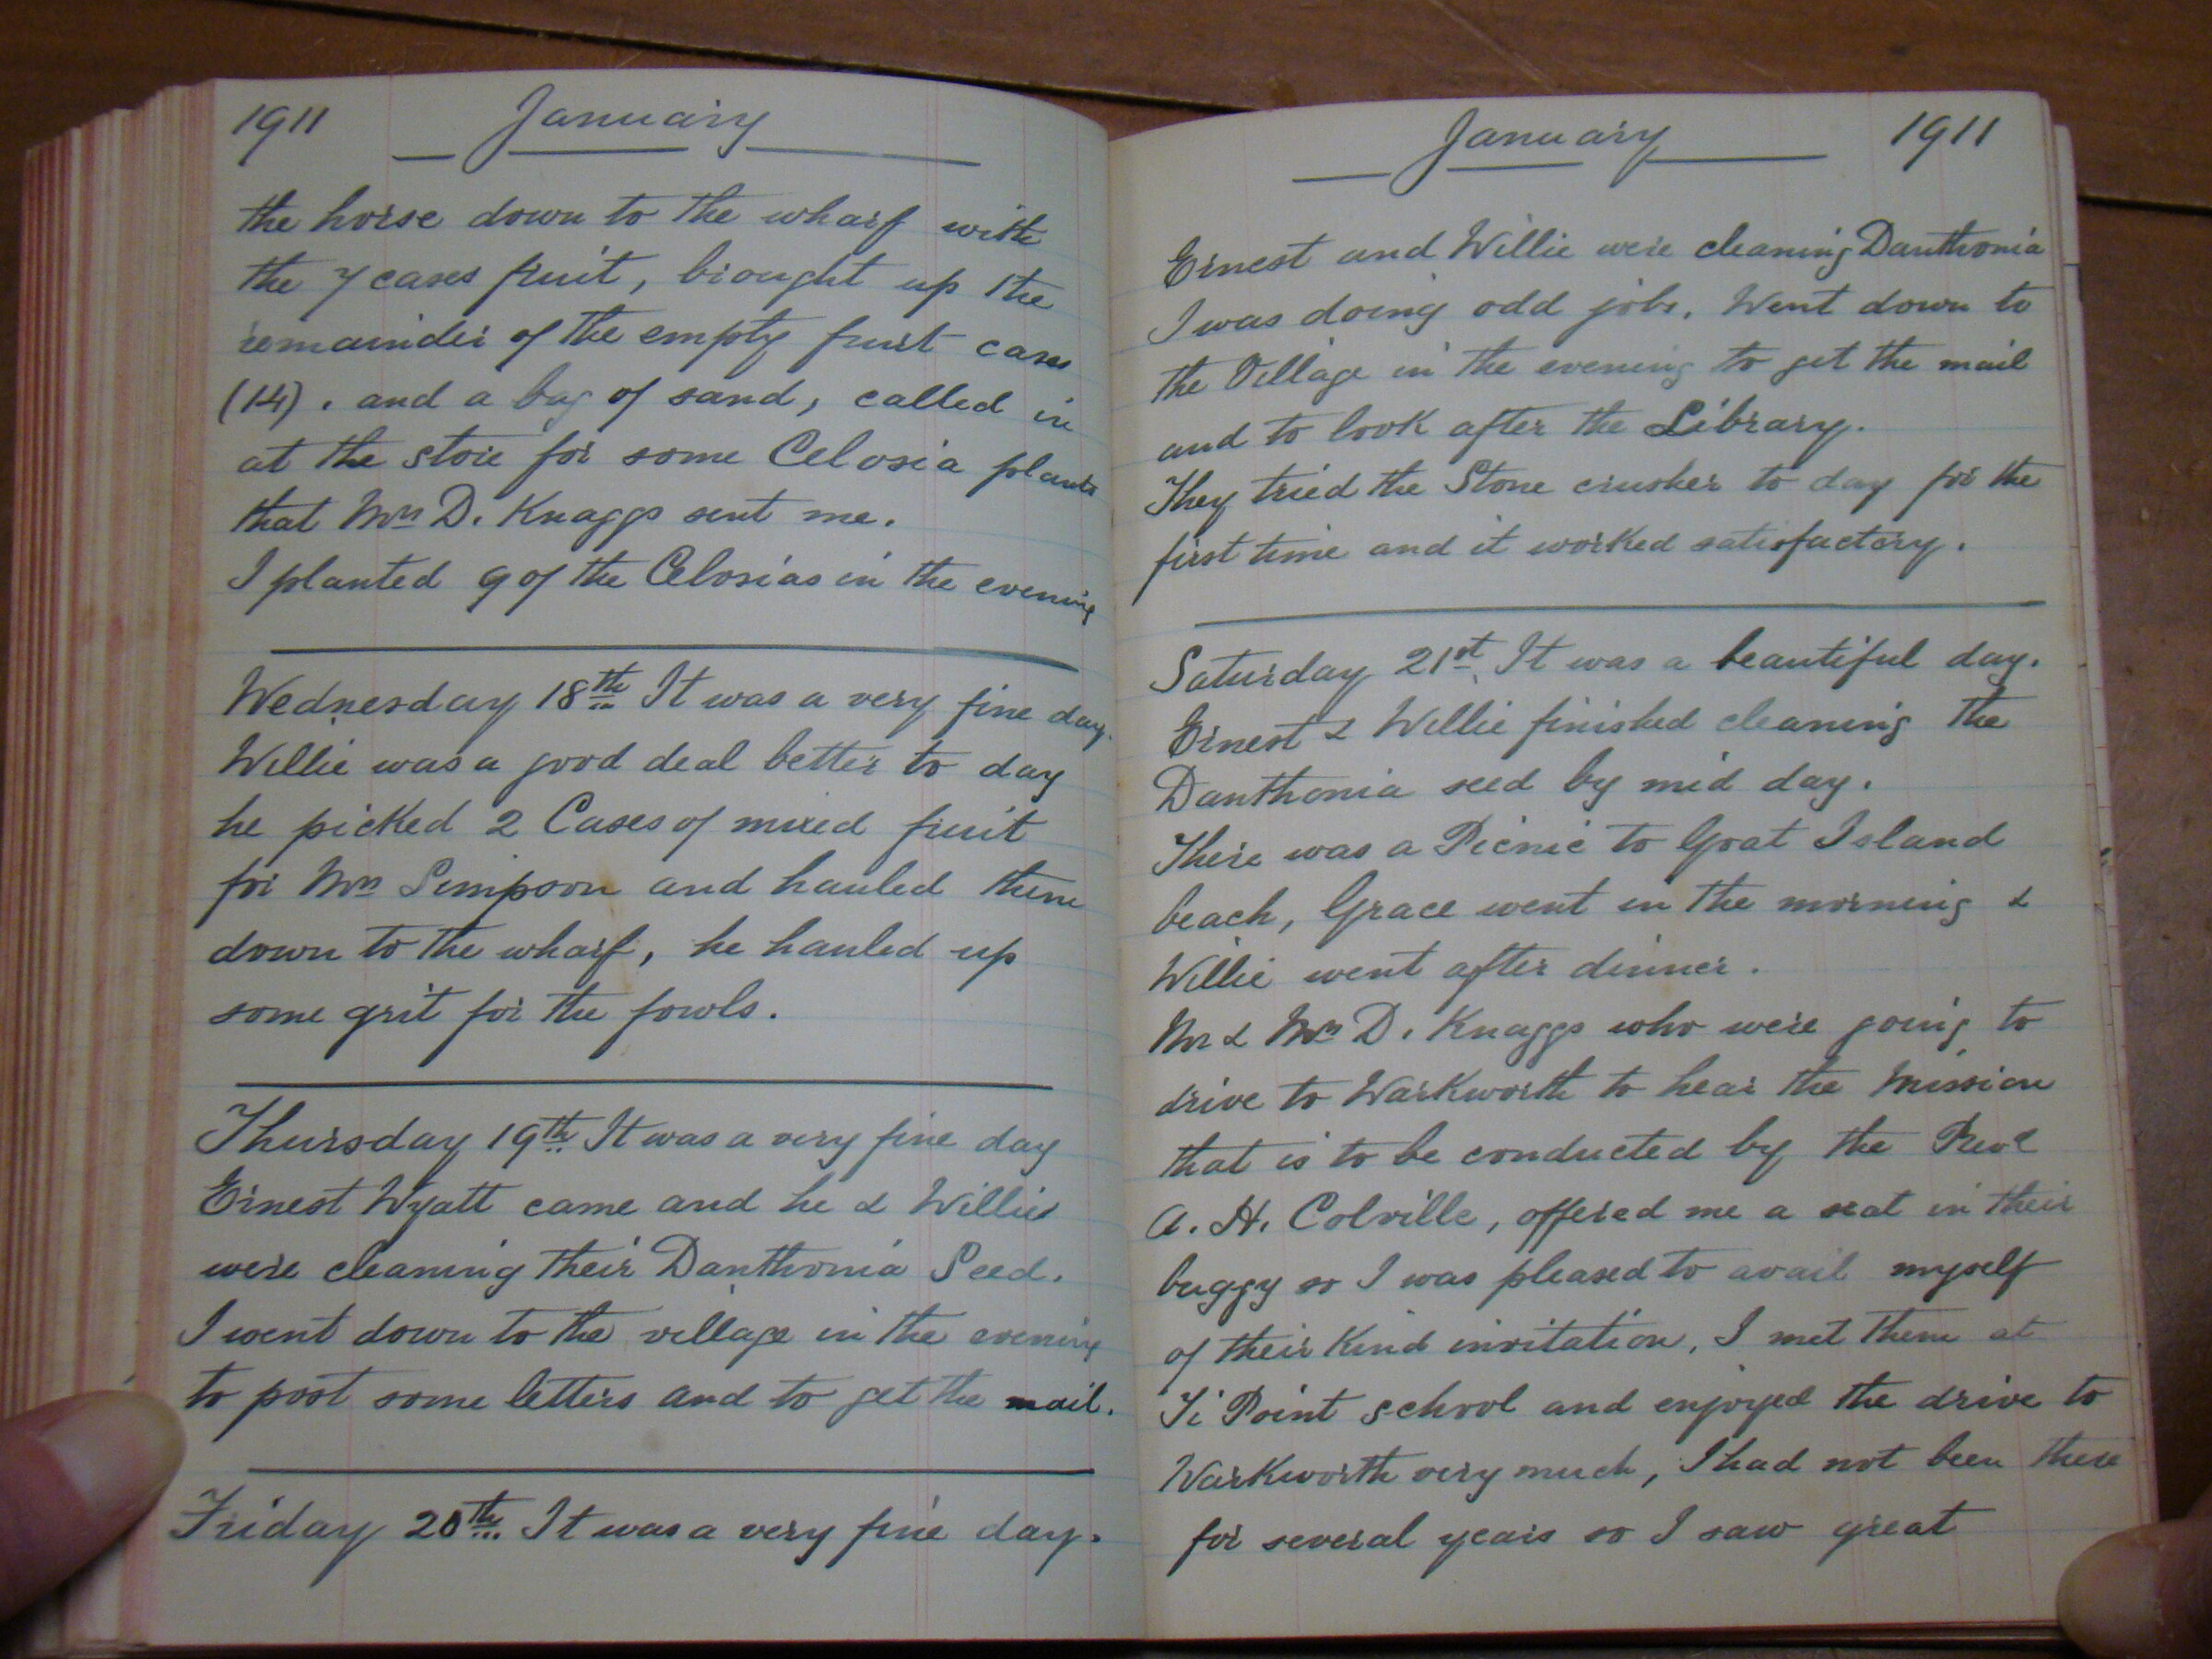 1911 January
the horse down to the wharf with
the 7 cases fruit, brought up the
remainder of the empty fruit cases
(14). and a bag of sand, called in
at the store for some Celosia plants
that Mrs D. Knaggs sent me.
I planted 9 of the Celosias in the evening
Wednesday 18th It was a very fine day.
Willie was a good deal better to day
he picked 2 Cases of mixed fruit
for Mrs Simpson and hauled them
down to the wharf, he hauled up
some grit for the fowls.
Thursday 19th It was a very fine day
Ernest Wyatt came and he & Willie
were cleaning their Danthonia Seed.
I went down to the village in the evening
to post some letters and to get the mail.
Friday 20th It was a very fine day.
January 1911
Ernest and Willie were cleaning Danthonia
I was doing odd jobs. Went down to
the Village in the evening to get the mail
and to look after the Library.
They tried the Stone crusher to day for the
first time and it worked satisfactory.
Saturday 21st. It was a beautiful day.
Ernest & Willie finished cleaning the
Danthonia seed by mid day.
There was a Picnic to Goat Island
beach, Grace went in the morning &
Willie went after dinner.
Mr & Mrs D. Knaggs who were going to
drive to Warkworth to hear the Mission
that is to be conducted by the Revd
A. H. Colville, offered me a seat in their
buggy so I was pleased to avail myself
of their kind invitation, I met them at
Ti Point school and enjoyed the drive to
Warkworth very much, I had not been there
for several years so I saw great